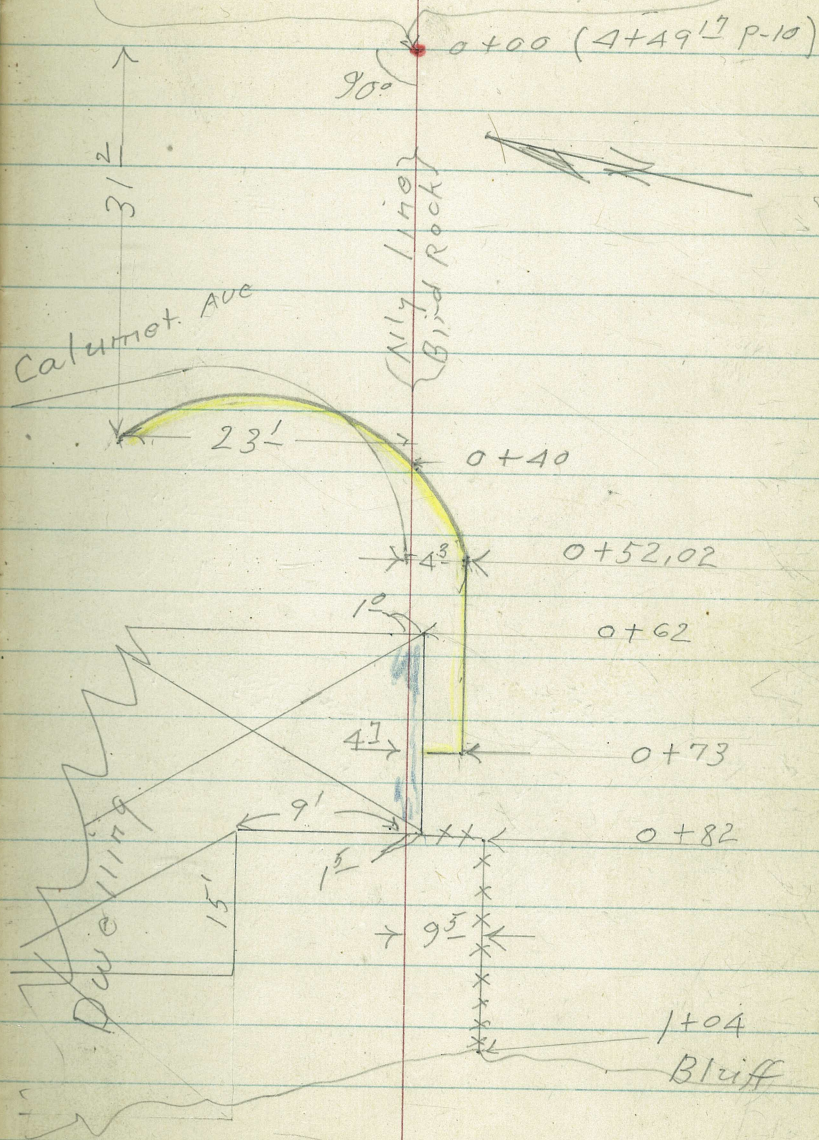 0+00 (4+49 17 P-10)
90°
31 2
{Nly line}
{Bird Rock}
Calumet. Ave
23'
0+40
4 3
0+52.02
1 0
0+62
4 7
0+73
9'
0+82
1 5
15'
Dwelling
9 5
1+04
Bluff